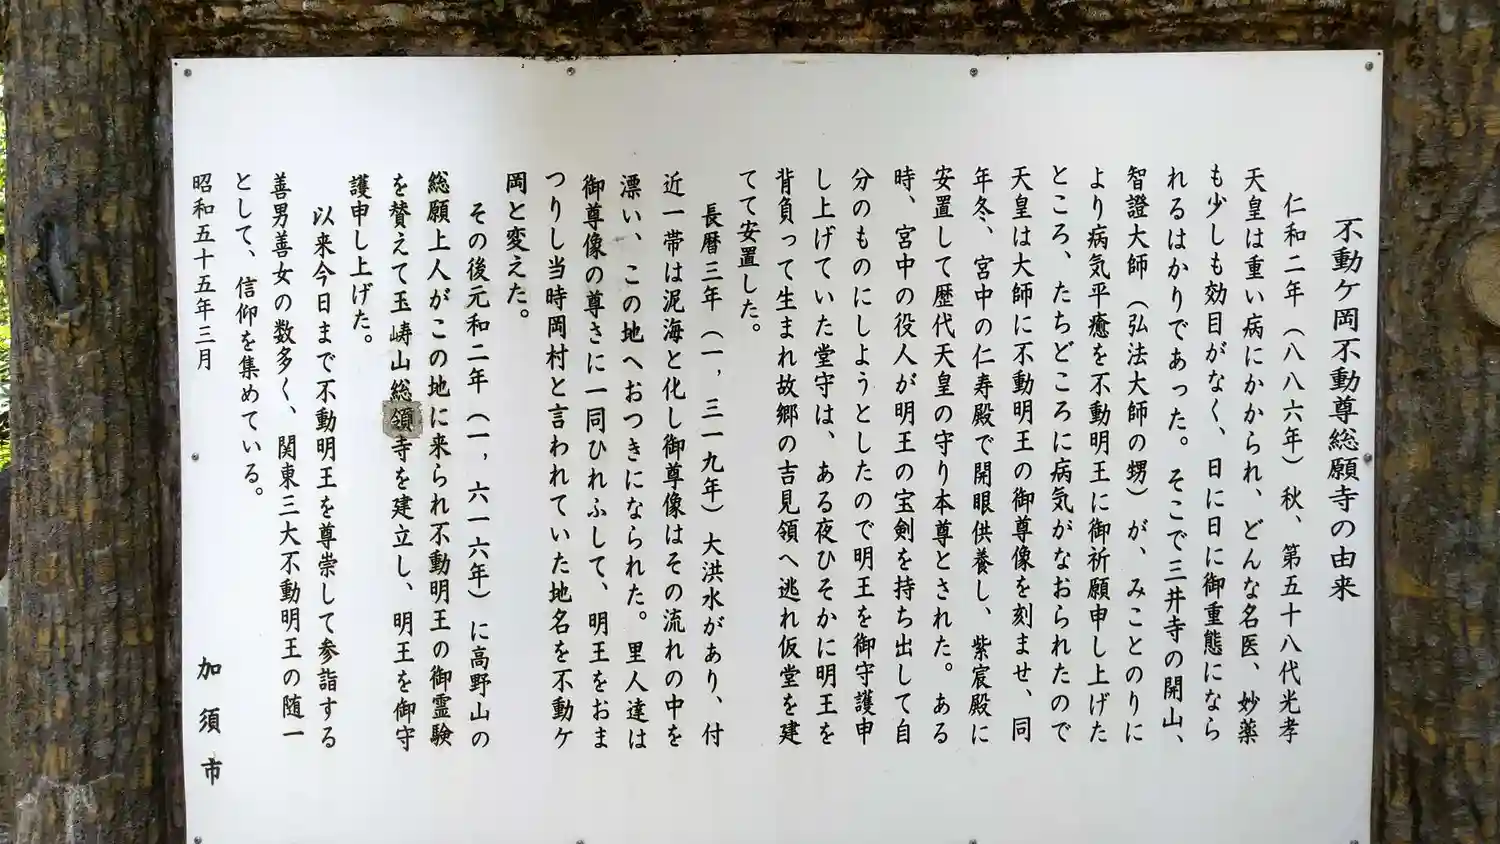 不動ケ岡不動尊総願寺の由来
仁和二年（八八六年）秋、第五十八代光孝
天皇は重い病にかかられ、どんな名医、妙薬
も少しも効目がなく、日に日に御重態になら
れるはかりであった。そこで三井寺の開山、
智證大師（弘法大師の甥）が、みことのりに
より病気平癒を不動明王に御祈願申し上げた
ところ、たちどころに病気がなおられたので
天皇は大師に不動明王の御尊像を刻ませ、同
年冬、宮中の仁寿殿で開眼供養し、紫宸殿に
安置して歴代天皇の守り本尊とされた。ある
時、宮中の役人が明王の宝剣を持ち出して自
分のものにしようとしたので明王を御守護申
し上げていた堂守は、ある夜ひそかに明王を
背負って生まれ故郷の吉見領へ逃れ仮堂を建
てて安置した。
長暦三年（一，三一九年）大洪水があり、付
近一帯は泥海と化し御尊像はその流れの中を
漂い、この地へおつきになられた。里人達は
御尊像の尊さに一同ひれふして、明王をおま
つりし当時岡村と言われていた地名を不動ケ
岡と変えた。
その後元和二年（一，六一六年）に高野山の
総願上人がこの地に来られ不動明王の御霊験
を賛えて玉嶹山総領寺を建立し、明王を御守
護申し上げた。
以来今日まで不動明王を尊崇して参詣する
善男善女の数多く、関東三大不動明王の随一
として、信仰を集めている。
昭和五十五年三月
加須市